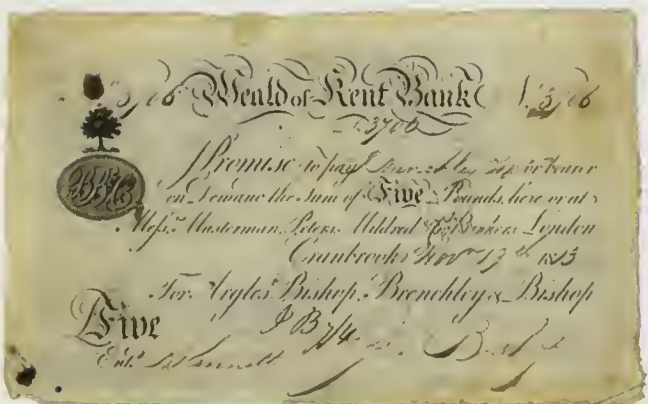 3706 Weald of Kent Bank No. 3706
No. 3706
I Promise to pay or bearer
on Demand the Sum of Five Pounds, here or at
Messrs. Masterman, Peters, Mildred & Co. Bankers London
Cranbrook Novr. 1813
For Argles, Bishop, Brenchley & Bishop
Five
Entd.